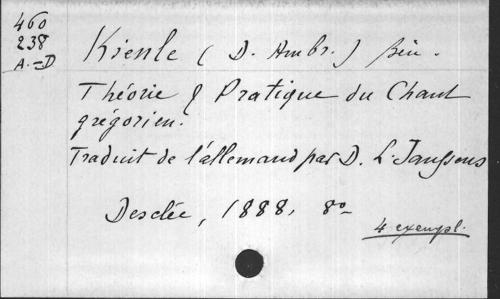 460
238
A.=D
Kienle (D. Ambr.)
Théorie & Pratique du Chant
grégorien.
Traduit de l'allemand par D. L. Janssens
Desclée, 1888, 8º
4 exempl.